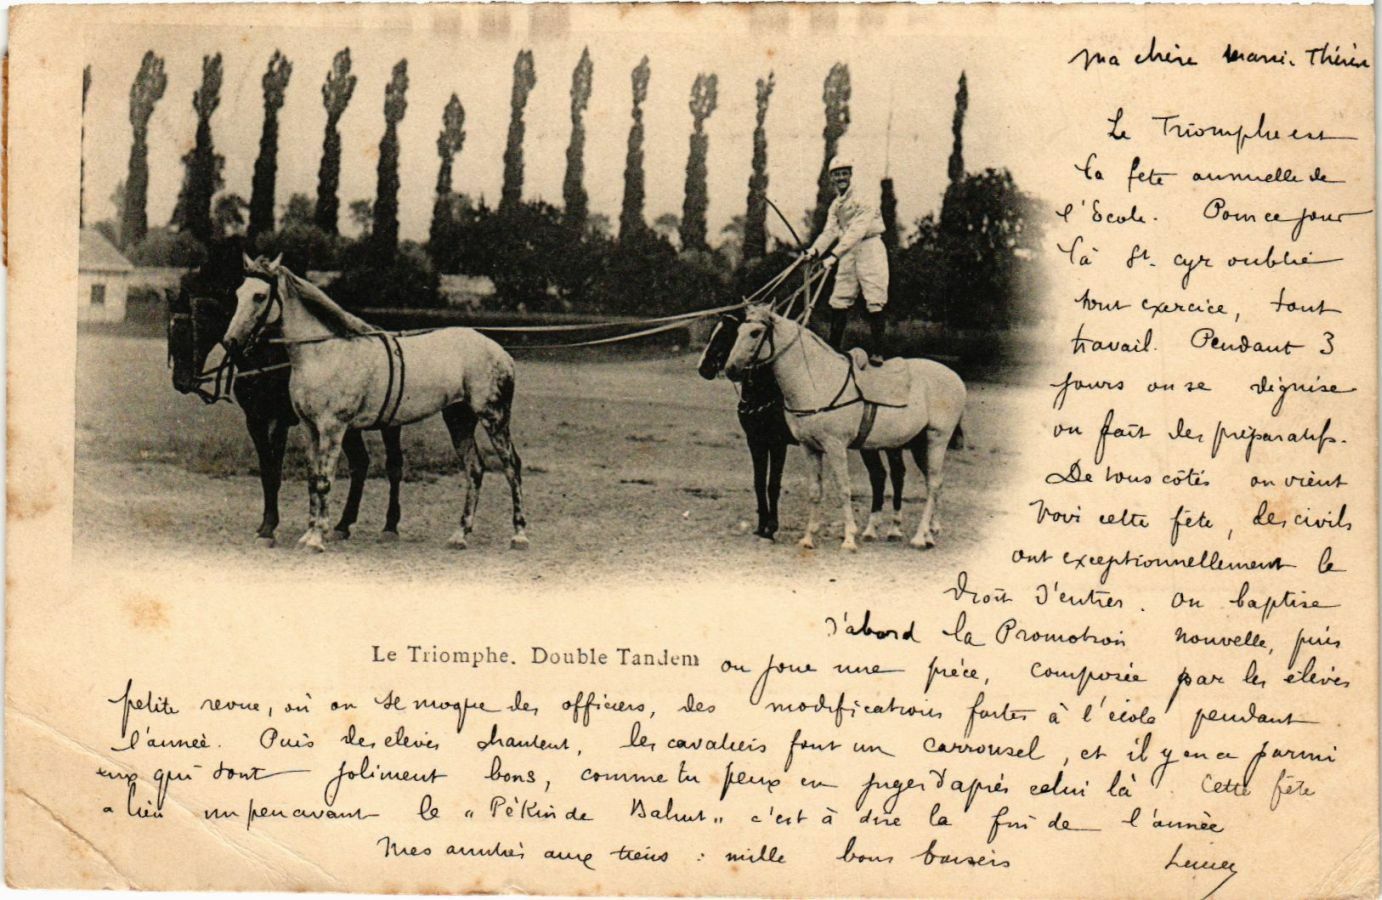 Ma chère Marie-Thérèse
Le Triomphe est
la fête annuelle de
l'École. Pour ce jour
là St. Cyr oublie
tout exercice, tout
travail. Pendant 3
jours on se déguise
on fait des préparatifs.
De tous côtés on vient
voir cette fête, les civils
ont exceptionnellement le
droit d'entrer. On baptise
d'abord la Promotion nouvelle, puis
Le Triomphe. Double Tandem
on joue une pièce, composée par les élèves
petite revue, où on se moque des officiers, des modifications faites à l'école pendant
l'année. Puis des élèves chantent, les cavaliers font un carrousel, et il y en a parmi
eux qui sont joliment bons, comme tu peux en juger d'après celui là. Cette fête
a lieu un peu avant le "Pékin de Bahut" c'est à dire la fin de l'année
Mes amitiés aux tiens : mille bons baisers